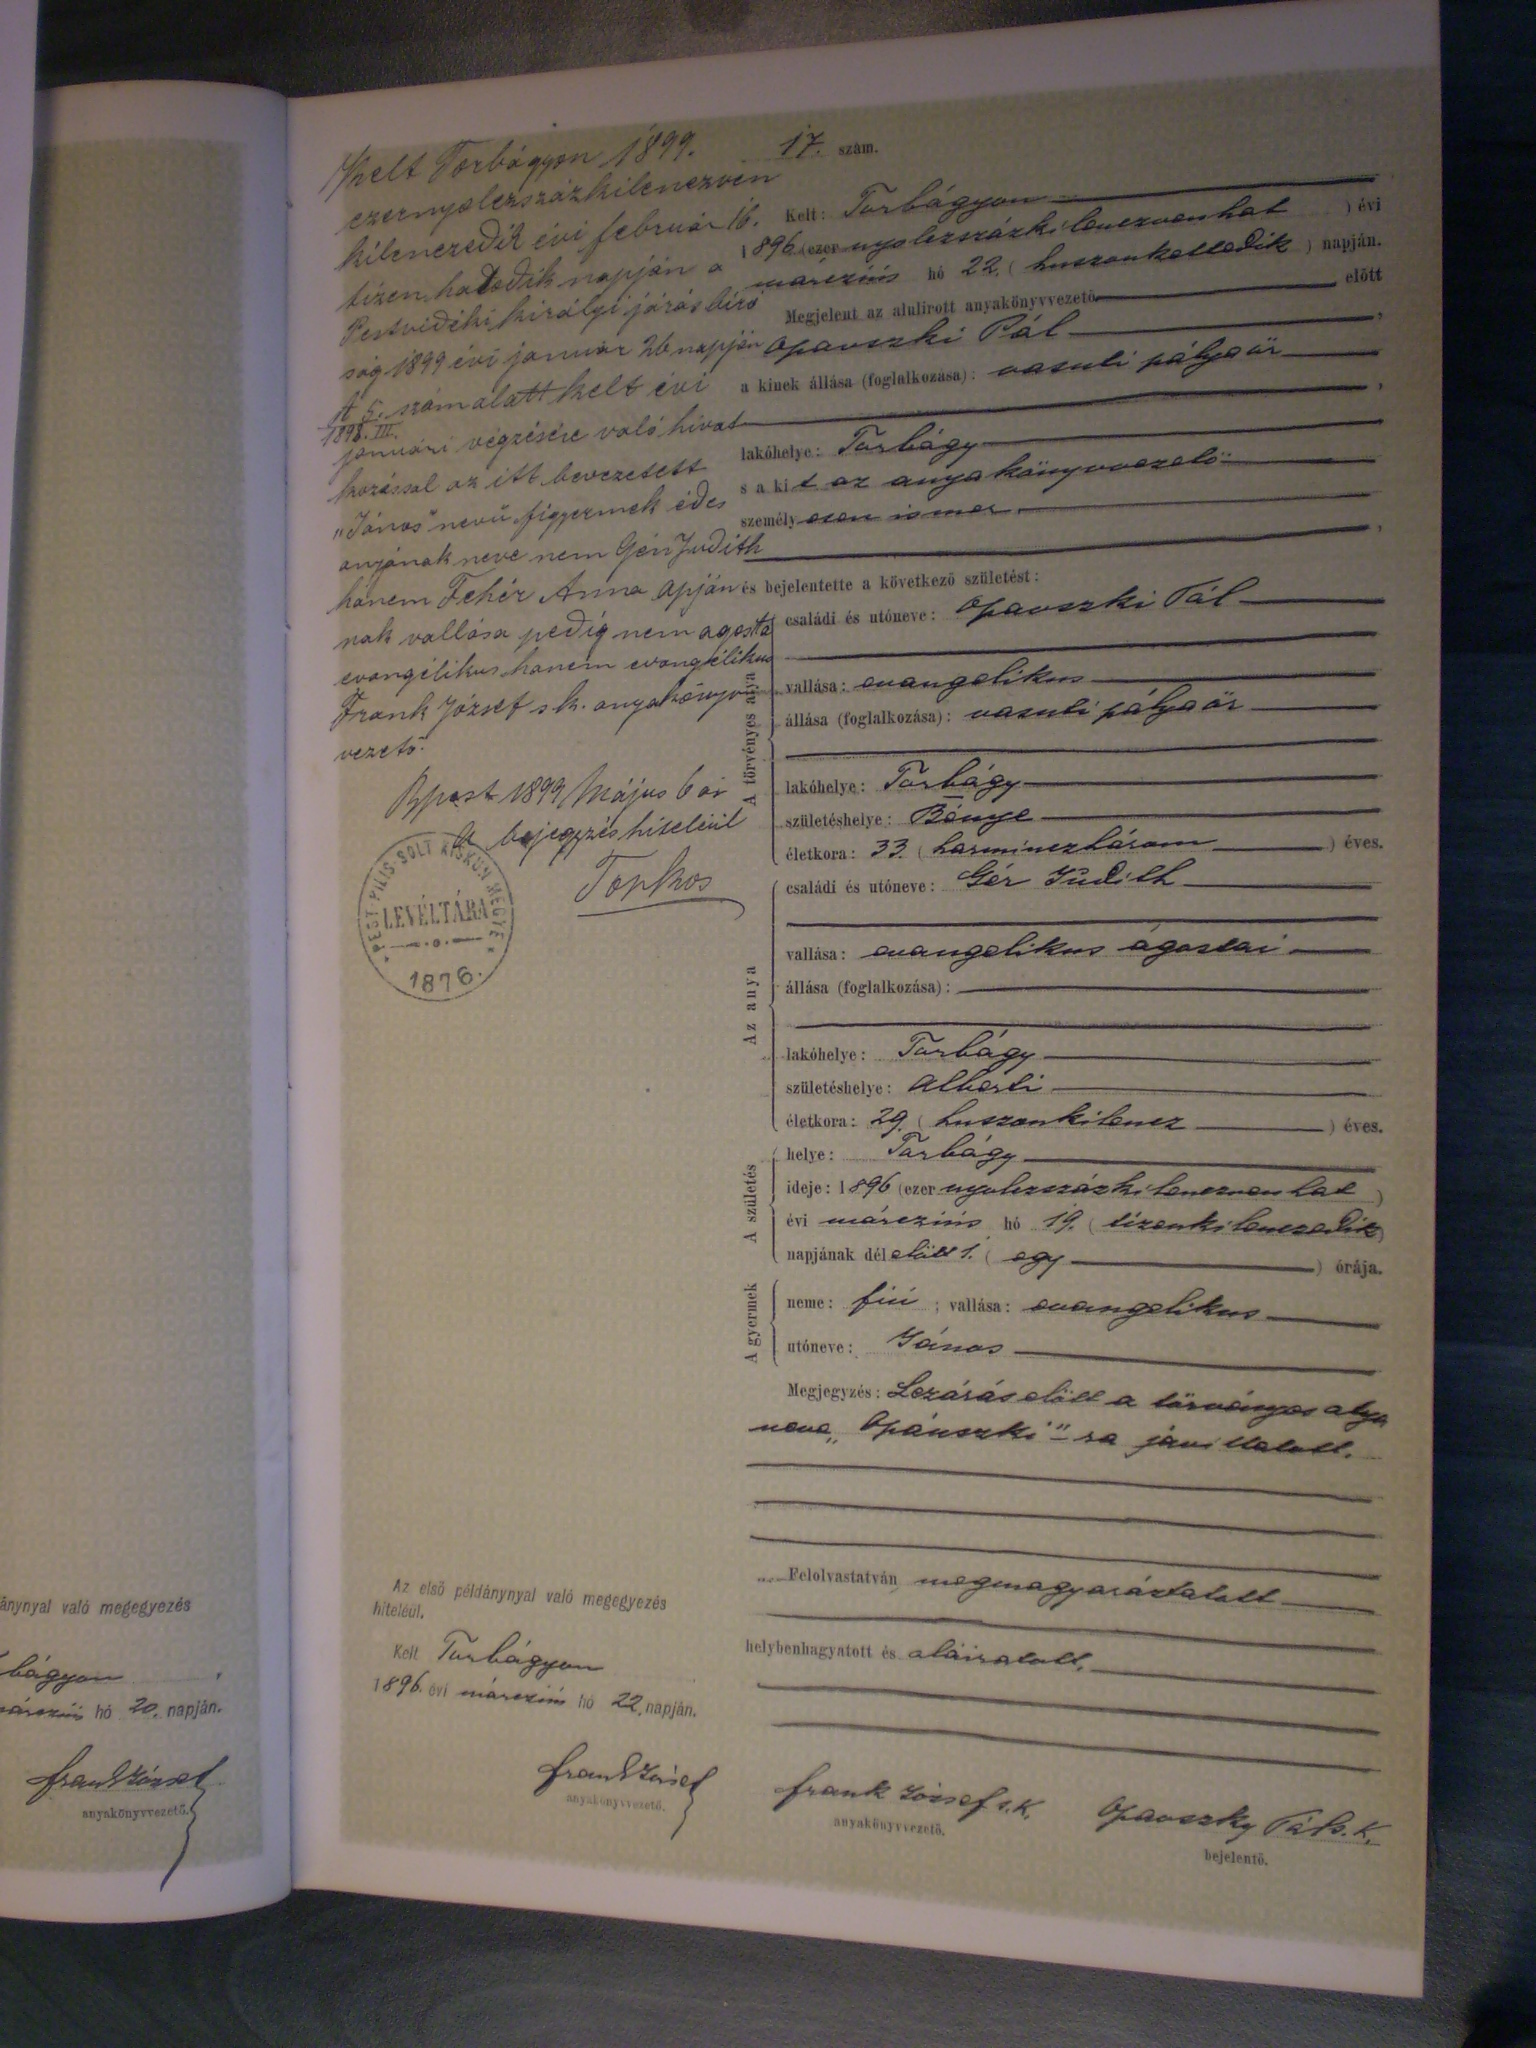 Kelt Torbágyon 1899.
ezernyolczszázkilenczven
kilenczedik évi február 16.
tizenhatodik napján a
Pestvidéki királyi járásbíró
ság 1899 évi január 26 napján
5. szám alatt kelt évi
1898. III.
januári végzésére való hivat
kozással az itt bevezetett
"János" nevű figyermek édes
anyjának neve nem Gér Judith
hanem Fehér Anna apján
nak vallása pedig nem agostai
evangélikus hanem evangélikus
Frank József sk. anyakönyv
vezető.
Bpest 1899 Május 6 án
A bejegyzés hiteléül
PEST-PILIS-SOLT KISKUN MEGYE
LEVÉLTÁRA
1876.
17. szám.
Kelt: Torbágyon
1896 (ezer nyolczszázkilenczvenhat ) évi
márczius hó 22. ( huszonkettedik ) napján.
Megjelent az alulirott anyakönyvvezető előtt
Opavszki Pál ,
a kinek állása (foglalkozása): vasuti pályaőr
,
lakóhelye: Torbágy
s a kit az anyakönyvvezető
személyesen ismer.
,
és bejelentette a következő születést:
A törvényes apja
családi és utóneve: Opavszki Pál
vallása: evangelikus
állása (foglalkozása): vasuti pályaőr
lakóhelye: Torbágy
születéshelye: Bénye
életkora: 33. ( harminczhárom ) éves.
Az anya
családi és utóneve: Gér Judith
vallása: evangelikus ágostai
állása (foglalkozása):
lakóhelye: Torbágy
születéshelye: Alberti
életkora: 29. ( huszonkilencz ) éves.
A születés
helye: Torbágy
ideje: 1896 (ezer nyolczszázkilenczvenhat )
évi márczius hó 19. ( tizenkilenczedik )
napjának délelőtt 1. ( egy ) órája.
A gyermek
neme: fiú ; vallása: evangelikus
utóneve: János
Megjegyzés: Lezárás előtt a törvényes atya
neve „Opauszki"-ra javíttatott.
Felolvastatván megmagyaráztatott
helybenhagyatott és aláíratott.
Az első példánynyal való megegyezés
hiteléül.
Kelt Torbágyon
1896. évi márczius hó 22. napján.
Frank József
anyakönyvvezető.
Frank József s.k.
anyakönyvvezető.
Opavszky Pál s.k.
bejelentő.
ánynyal való megegyezés
bágyon
márczius hó 20. napján.
Frank József
anyakönyvvezető.